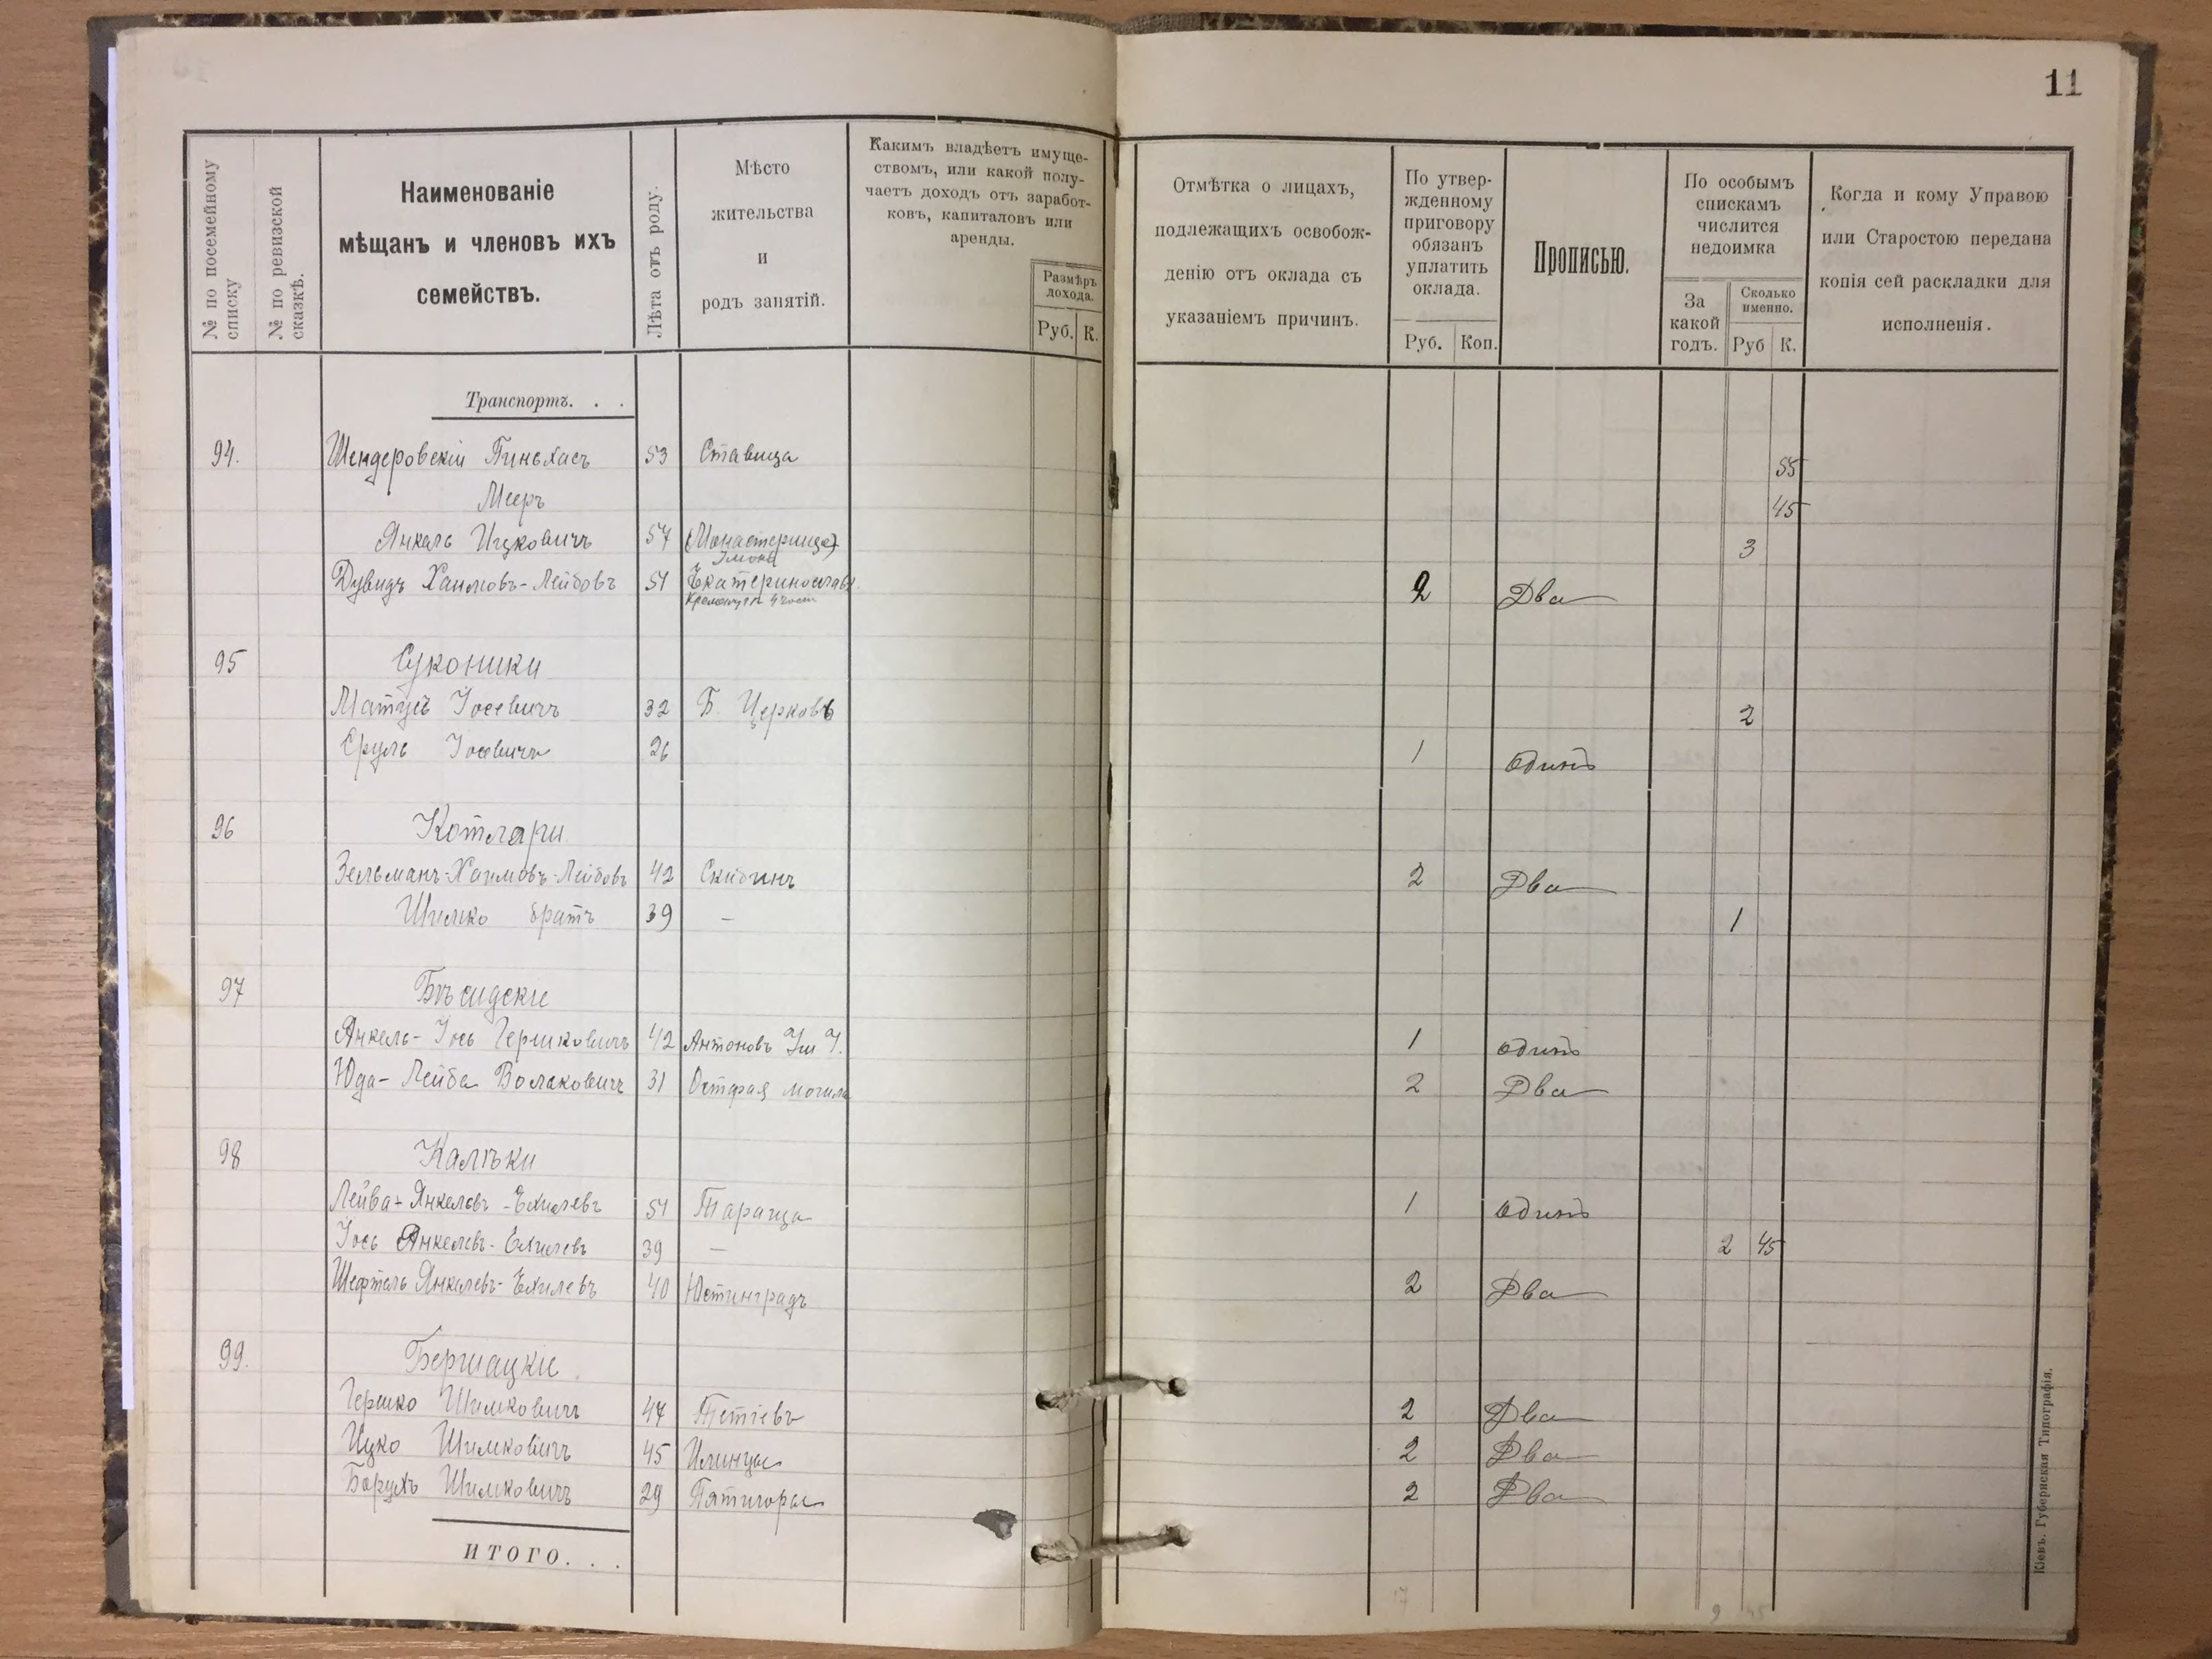 11
№ по посемейному списку
№ по ревизской сказкѣ.
Наименованіе
мѣщанъ и членовъ ихъ
семействъ.
Лѣта отъ роду.
Мѣсто
жительства
и
родъ занятій.
Какимъ владѣетъ имуще-
ствомъ, или какой полу-
чаетъ доходъ отъ заработ-
ковъ, капиталовъ или
аренды.
Размѣръ
дохода.
Руб. К.
Отмѣтка о лицахъ,
подлежащихъ освобож-
денію отъ оклада съ
указаніемъ причинъ.
По утвер-
жденному
приговору
обязанъ
уплатить
оклада.
Руб. Коп.
Прописью.
По особымъ
спискамъ
числится
недоимка
За
какой
годъ.
Сколько
именно.
Руб К.
Когда и кому Управою
или Старостою передана
копія сей раскладки для
исполненія.
Транспортъ. . .
94. Шендеровскій Пиньхасъ 53 Ставища 55
Мееръ 45
Янкель Ицковичъ 57 (Монастерище) 3
Умонь
Дувидъ Хаимовъ-Лейбовъ 51 Екатеринославъ 2 Два
95 Суконики
Матусъ Іосевичъ 32 Б. Церковь 2
Сруль Іосевичъ 26 1 Одинъ
96 Котляри
Зельманъ-Хаимовъ-Лейбовъ 42 Скибинъ 2 Два
Шимко братъ 39 — 1
97 Бѣсидскіе
Янкель-Іось Гершковичъ 42 Антоновъ 1 Одинъ
Юда-Лейба Волковичъ 31 Острая могила 2 Два
98 Калѣки
Лейба-Янкелевъ-Ехилевъ 51 Тараща 1 Одинъ
Іось Янкелевъ-Ехилевъ 39 — 2 45
Шефтель Янкелевъ-Ехилевъ 40 Юстинградъ 2 Два
99. Бершацкіе
Гершко Шимковичъ 47 Тетіевъ 2 Два
Ицко Шимковичъ 45 Илинцы 2 Два
Борухъ Шимковичъ 29 Пятигоры 2 Два
ИТОГО. . .
17 9 45
Кіевъ. Губернская Типографія.